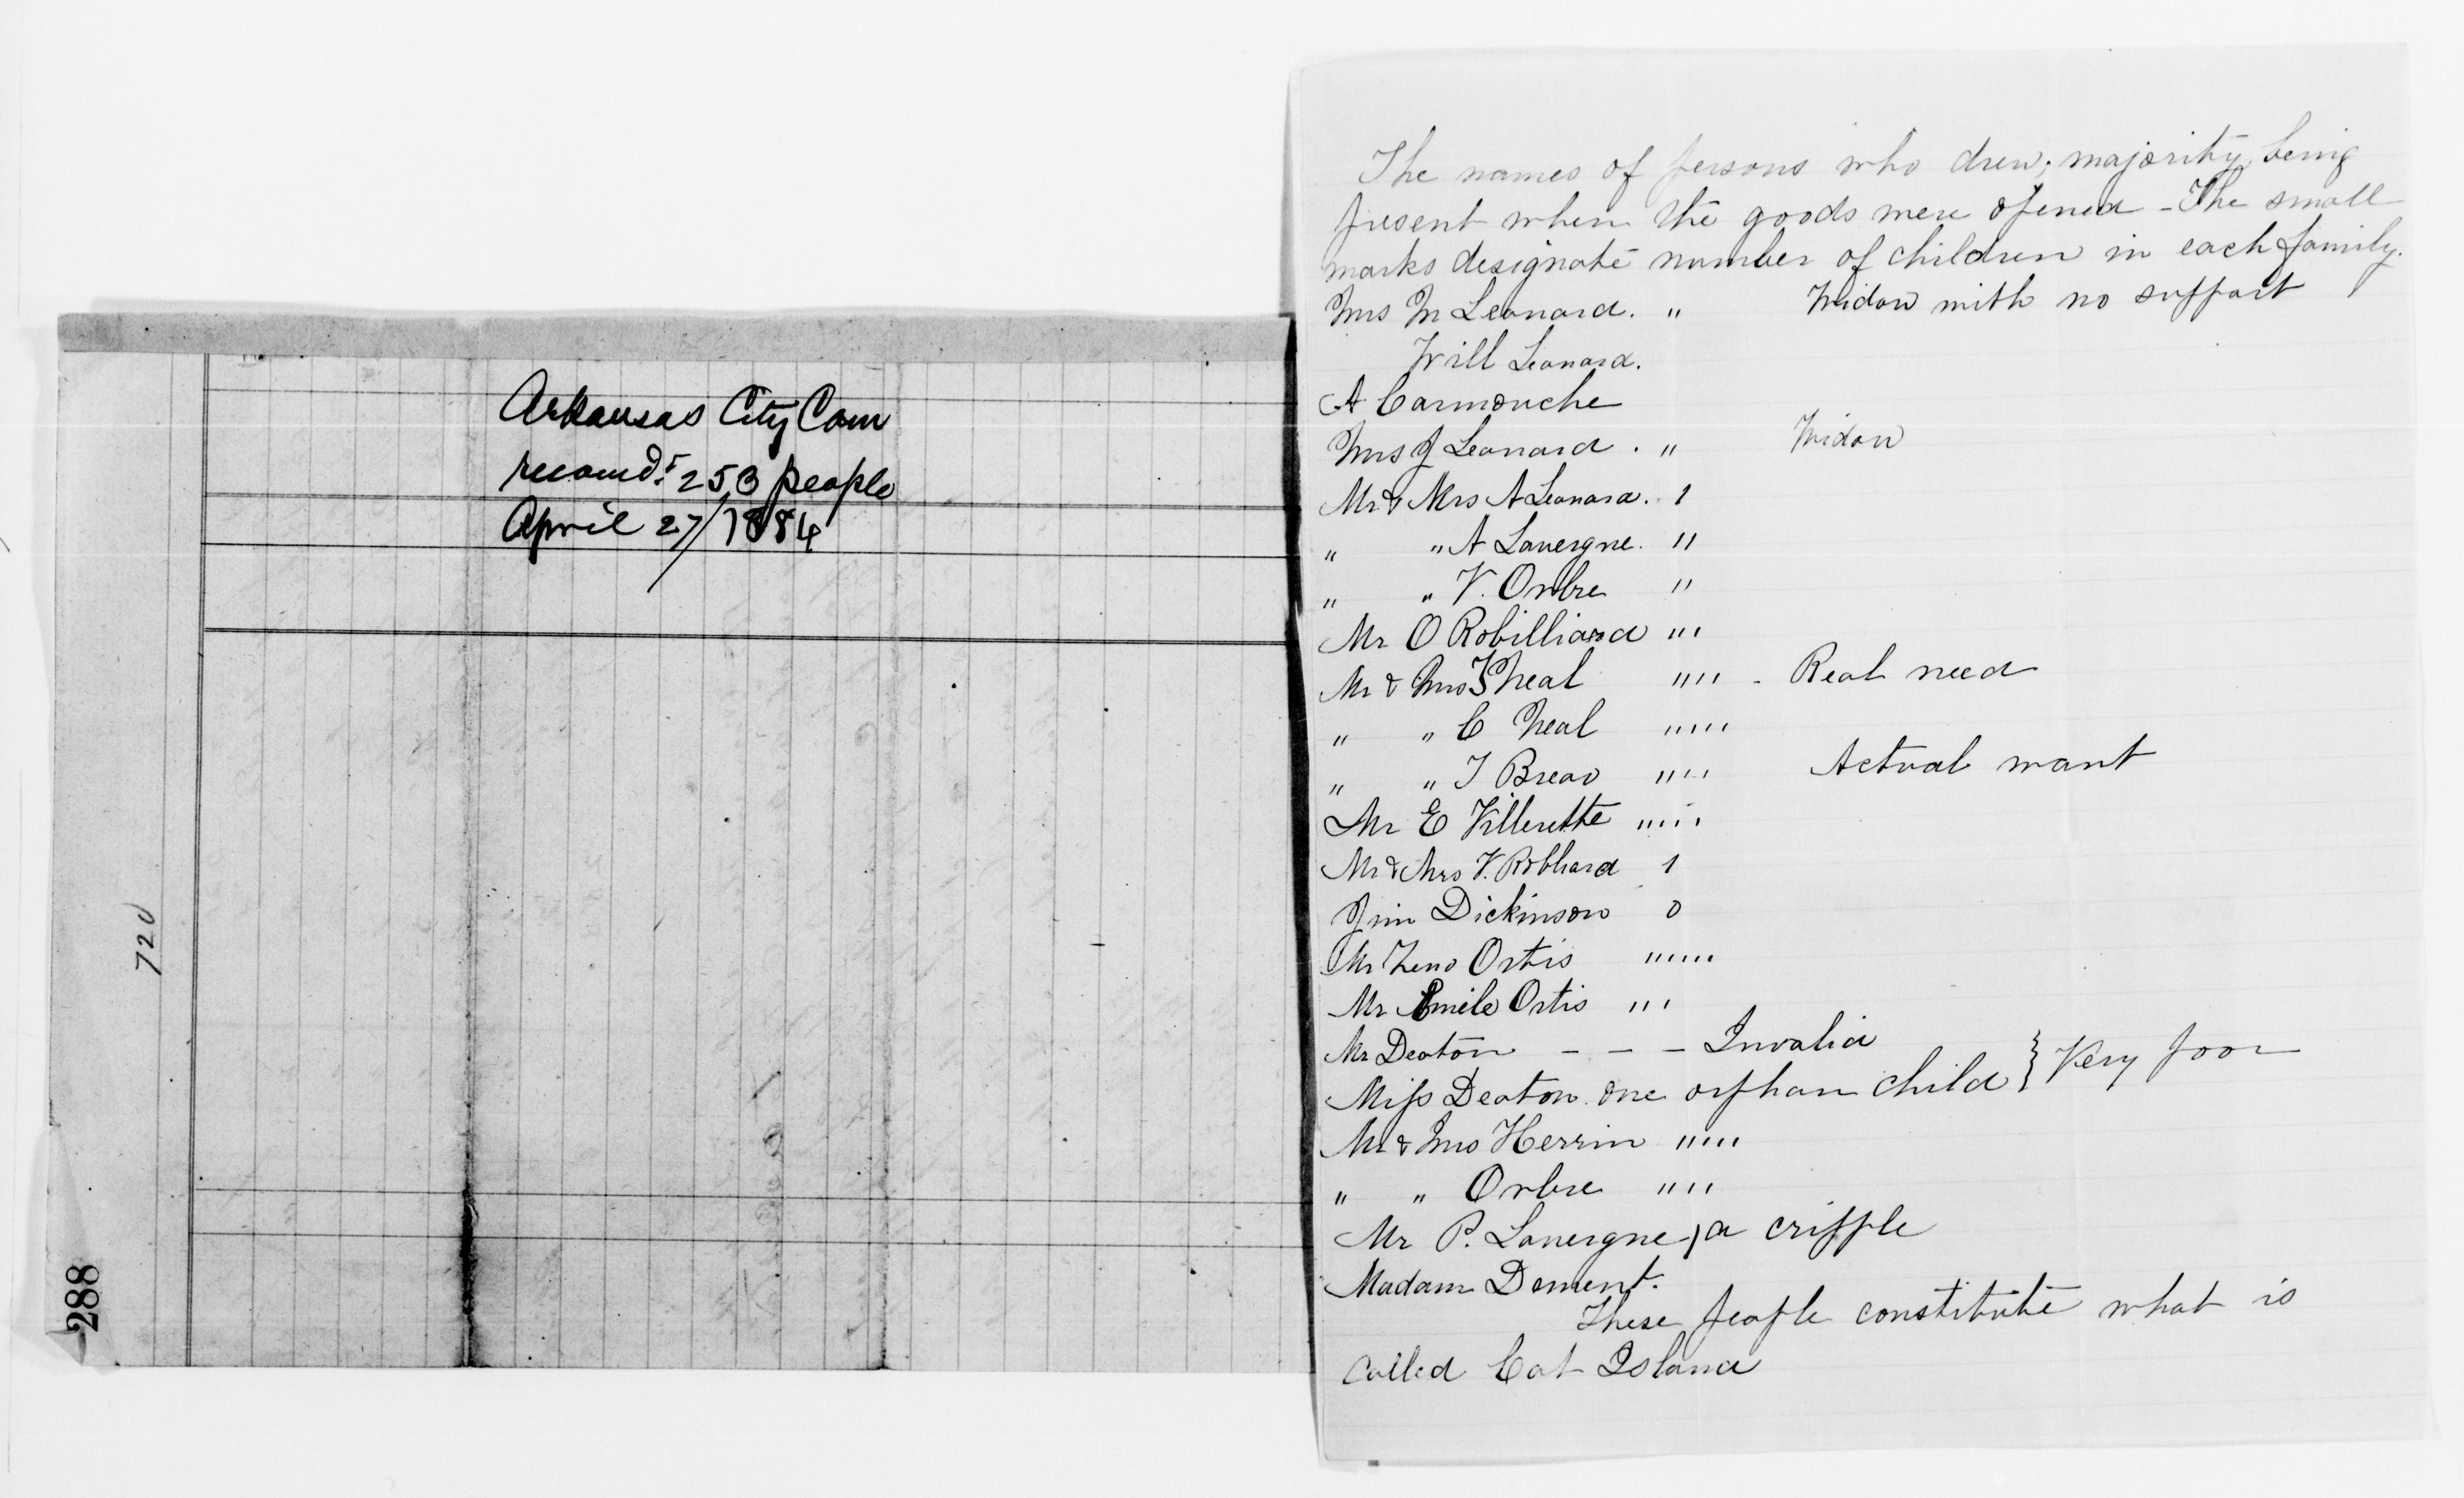 Arkansas City Com
recomd. 253 people
April 27/1884
720
288
The names of persons who drew, majority being
present when the goods were opened - The small
marks designate number of children in each family.
Mrs M Leonard. " Widow with no support
Will Leonard.
A Carmouche
Mrs J Leonard . " Widow
Mr & Mrs A Leonard. 1
" " A Lavergne. 11
" " V. Onbre 11
Mr O Robilliard 111
Mr & Mrs J Neal 1111 - Real need
" " C Neal 11111
" " J Breao 1111 Actual want
Mr E Villerette 11111
Mr & Mrs V. Robliard 1
Jim Dickinson 0
Mr Zeno Ortis 111111
Mr Emile Ortis 111
Mr Deaton - - - Invalid
Miss Deaton one orphan child } Very poor
Mr & Mrs Herrin 11111
" " Onbre 1111
Mr P. Lavergne, a cripple
Madam Dement.
These people constitute what is
called Cat Island